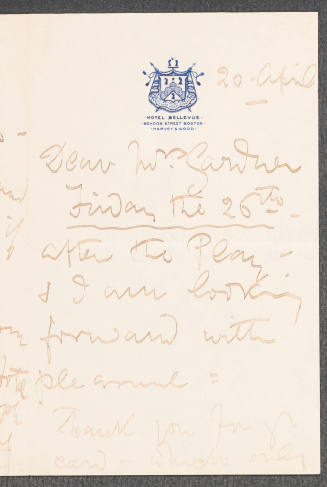 20 April
HOTEL BELLEVUE
BEACON STREET BOSTON
HARVEY & WOOD
Dear Mrs Gardner
Friday the 26th -
after the Play -
& I am looking
forward with
pleasure =
Thank you for yr
card - which only